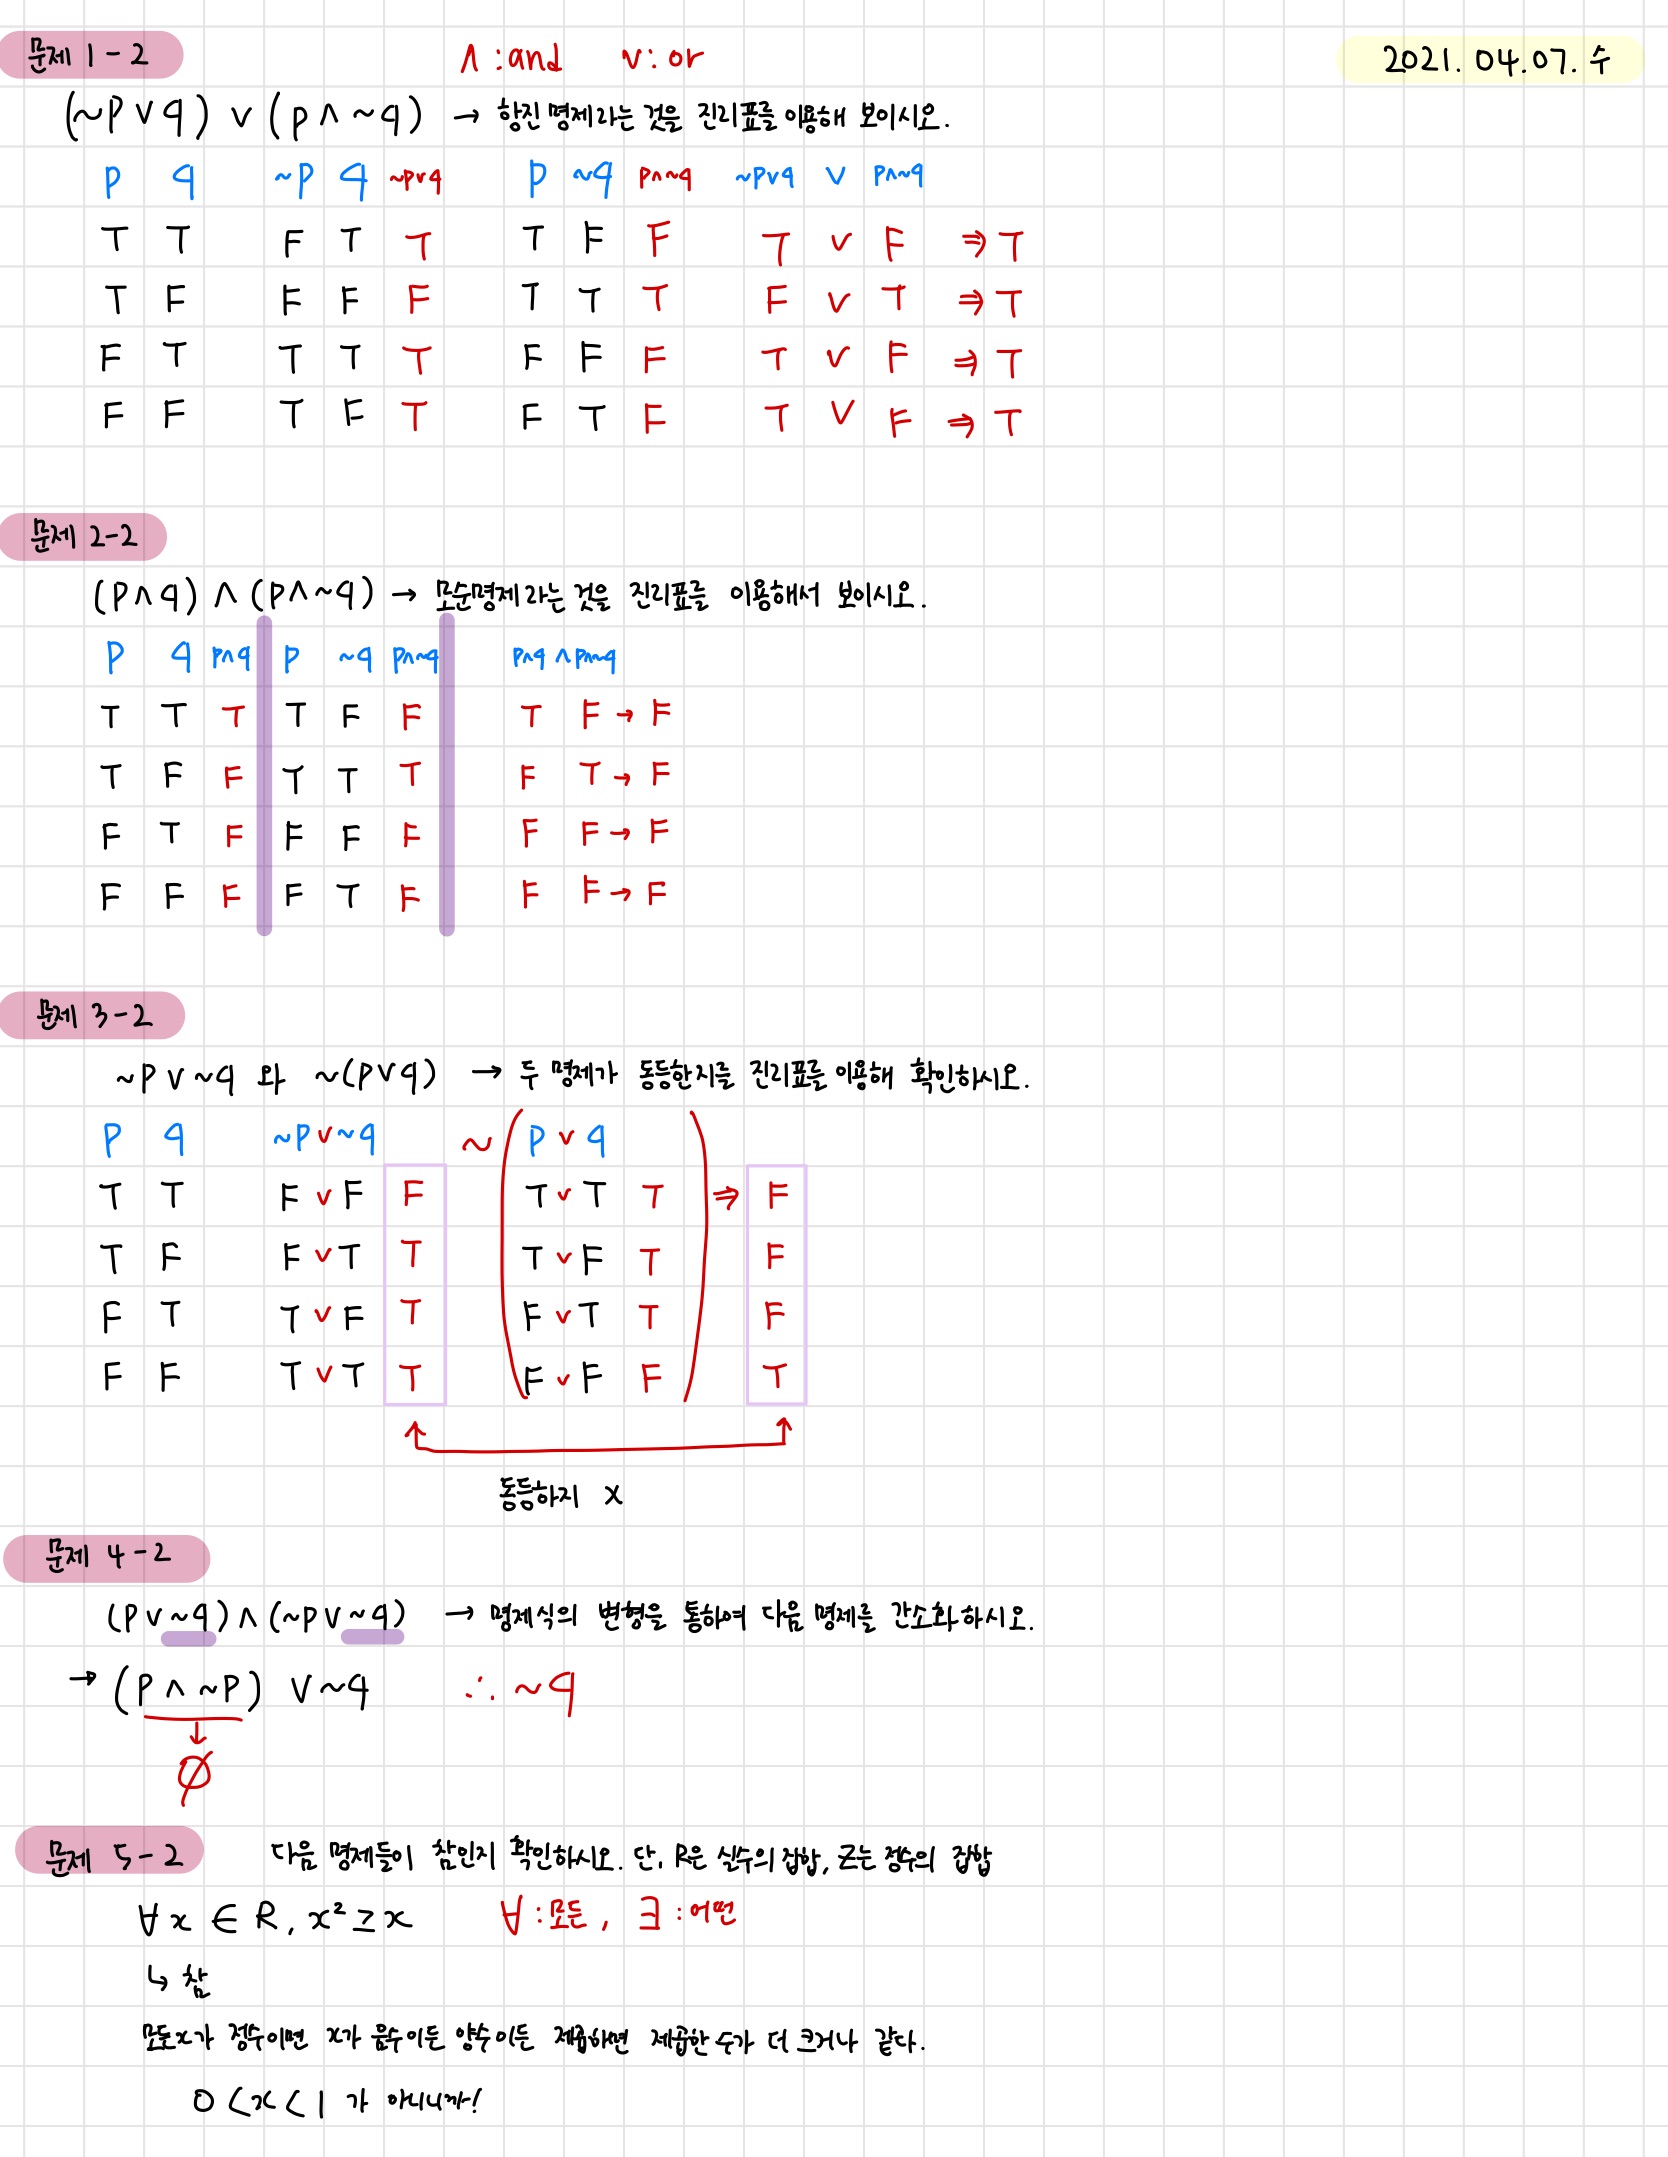 문제 1-2
∧:and ∨:or
2021.04.07.수
(~P∨q) ∨ (p∧~q) → 항진명제라는 것을 진리표를 이용해 보이시오.
P q ~P q ~P∨q P ~q P∧~q ~P∨q ∨ P∧~q
T T F T T T F F T ∨ F ⇒ T
T F F F F T T T F ∨ T ⇒ T
F T T T T F F F T ∨ F ⇒ T
F F T F T F T F T ∨ F ⇒ T
문제 2-2
(P∧q) ∧ (P∧~q) → 모순명제라는 것을 진리표를 이용해서 보이시오.
P q P∧q P ~q P∧~q P∧q ∧ P∧~q
T T T T F F T F → F
T F F T T T F T → F
F T F F F F F F → F
F F F F T F F F → F
문제 3-2
~P∨~q 와 ~(P∨q) → 두 명제가 동등한지를 진리표를 이용해 확인하시오.
P q ~P∨~q ~(P∨q)
T T F∨F F T∨T T ⇒ F
T F F∨T T T∨F T F
F T T∨F T F∨T T F
F F T∨T T F∨F F T
동등하지 X
문제 4-2
(P∨~q)∧(~P∨~q) → 명제식의 변형을 통하여 다음 명제를 간소화하시오.
→ (P∧~P) ∨~q ∴ ~q
↓
∅
문제 5-2 다음 명제들이 참인지 확인하시오. 단, R은 실수의 집합, Z는 정수의 집합
∀x ∈ R, x² ≥ x ∀:모든, ∃:어떤
↳ 참
모든x가 정수이면 x가 음수이든 양수이든 제곱하면 제곱한 수가 더 크거나 같다.
0<x<1 가 아니니까!